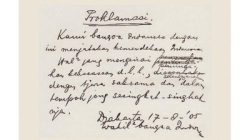 Proklamasi.
Kami bangsa Indonesia dengan
ini menjatakan kemerdekaan Indonesia
Hal² jang mengenai
kekoeasaan d.l.l.,
dengan tjara saksama dan dalam
tempoh jang sesingkat-singkat
nja.
Djakarta 17-8-05
Wakil² bangsa Indon